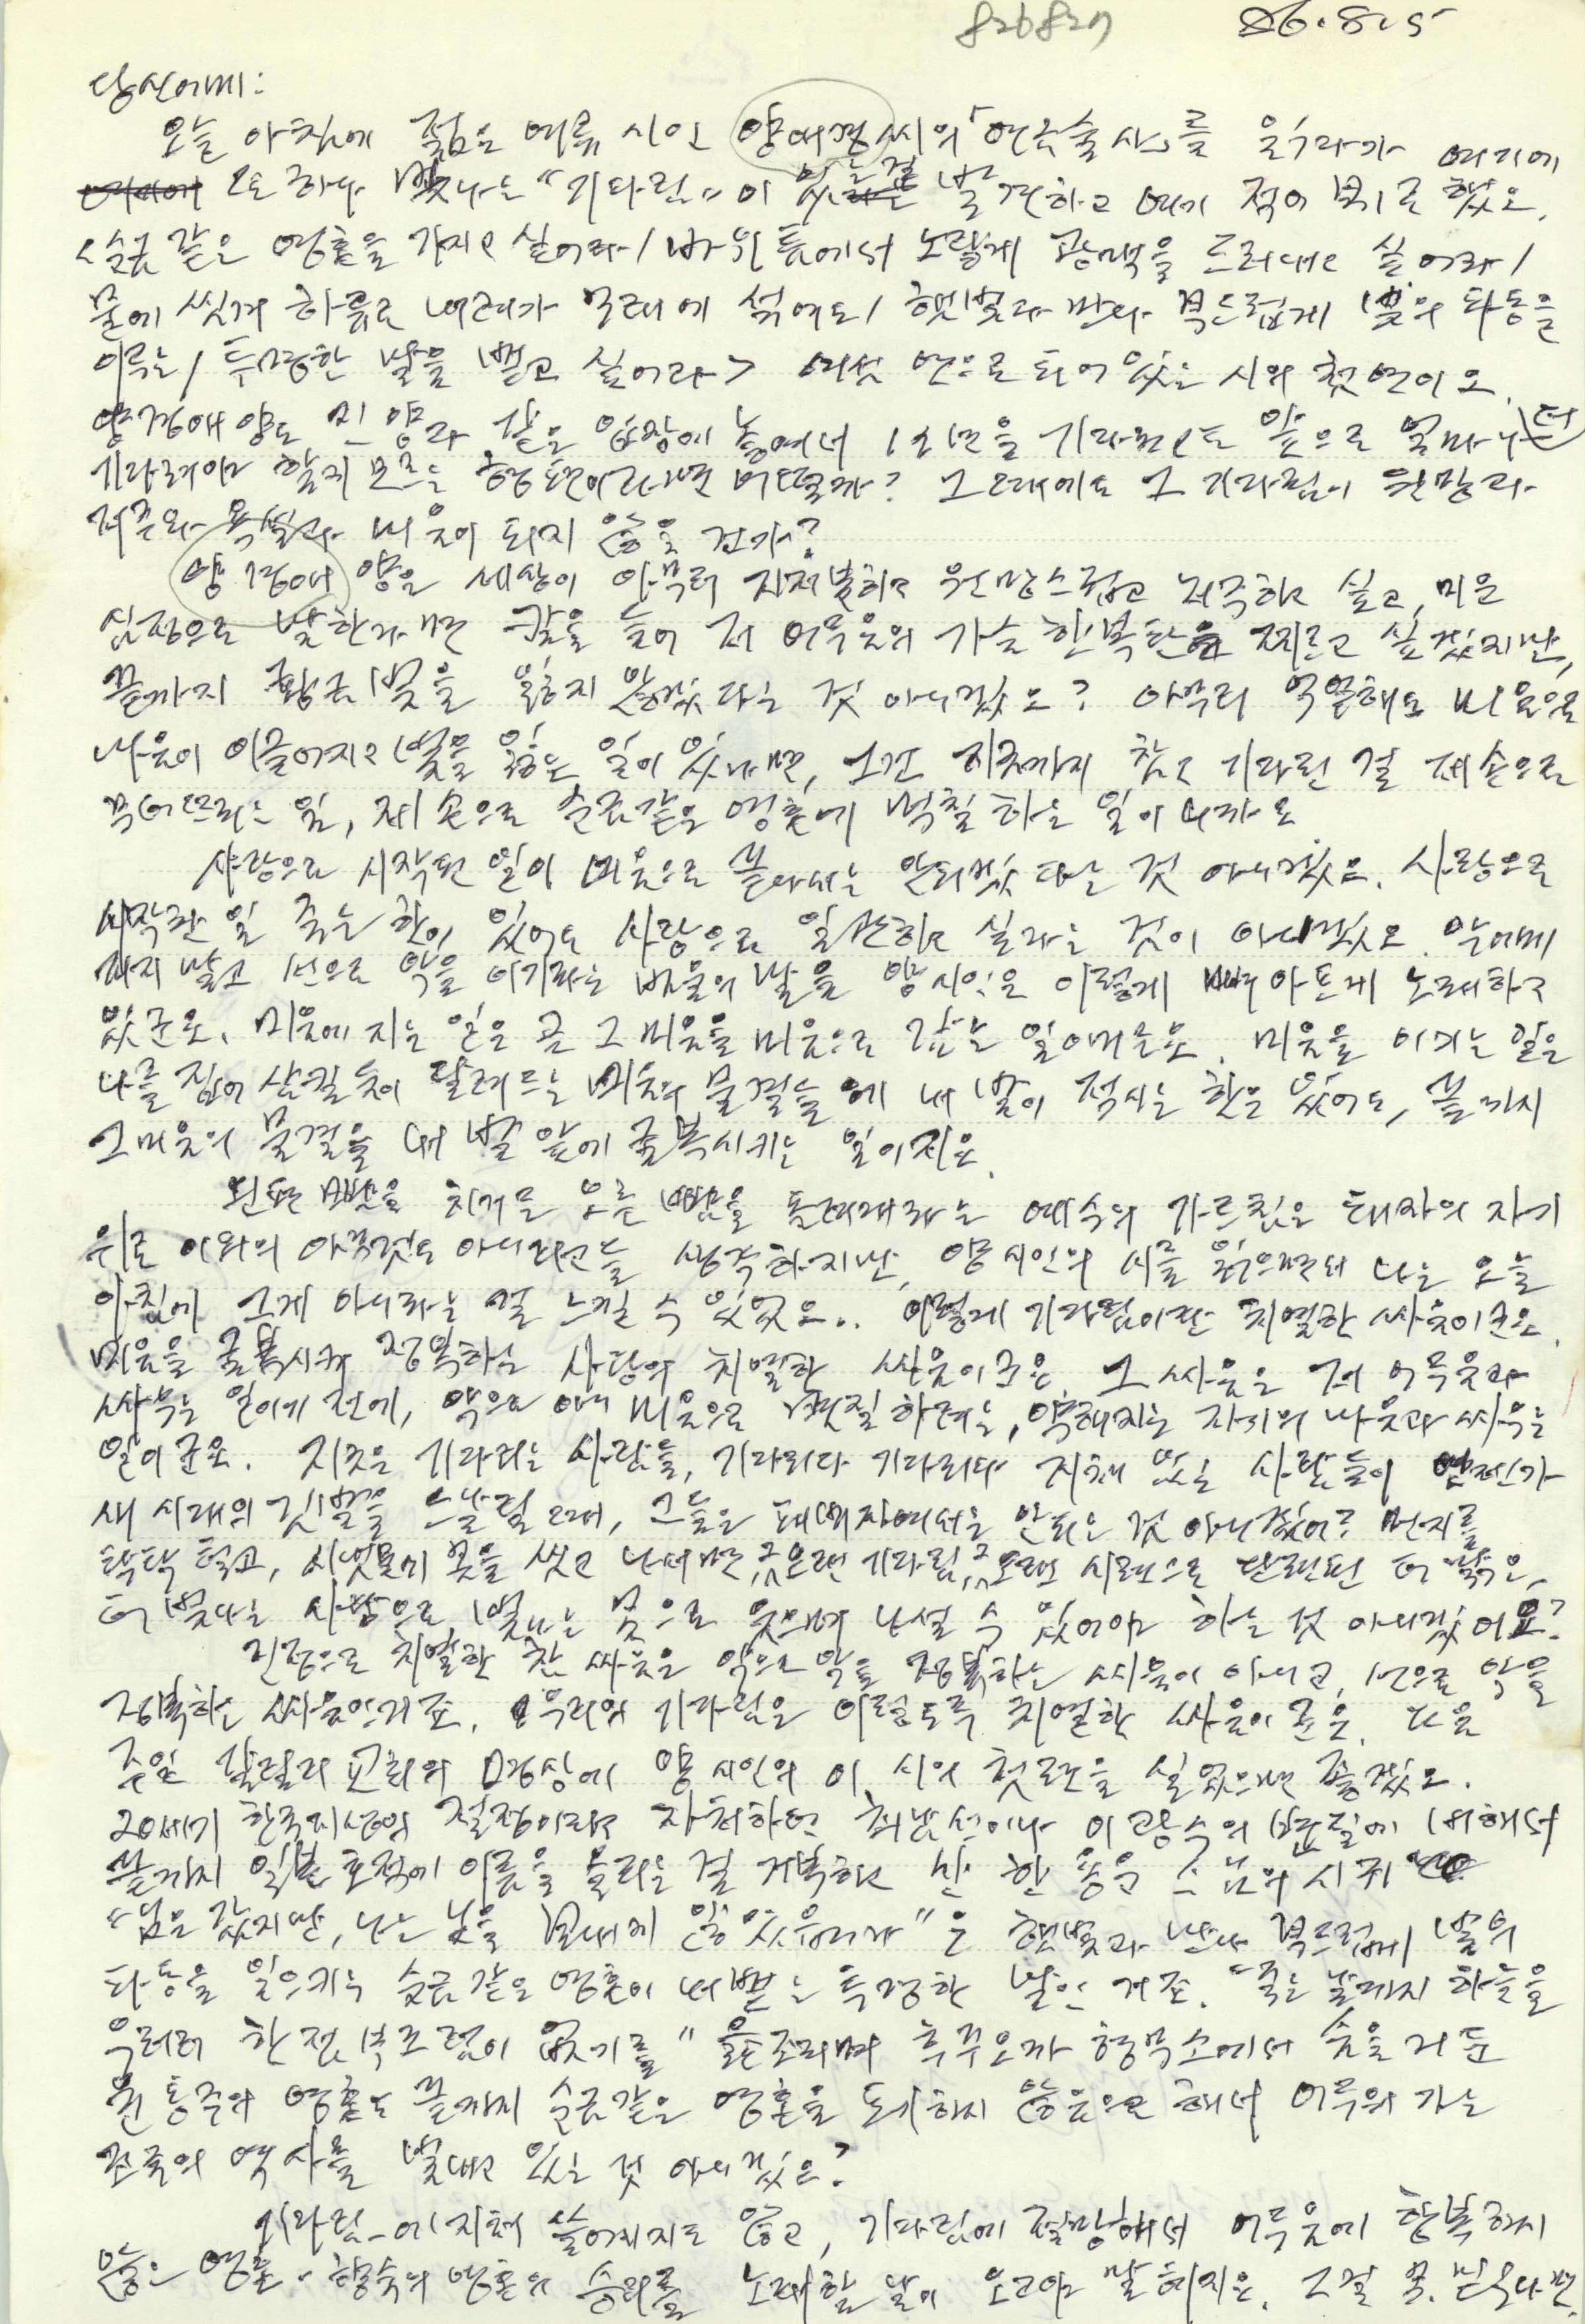 826827 86.8.5
당신에게:
오늘 아침에 젊은 여류 시인 양애경씨의 「연금술사」를 읽다가 여기에
또 하나 빛나는 "기다림"이 있는 걸 발견하고 여기 적어 보기로 했소.
<순금 같은 영혼을 가지고 싶어라/바위 틈에서 노랗게 광맥을 드러내고 싶어라/
물에 씻겨 하류로 내려가 모래에 섞여도/햇빛과 만나 부드럽게 빛의 파동을
이루는/투명한 발을 뻗고 싶어라> 여섯 연으로 되어 있는 시의 첫 연이오.
양경애 양도 민 양과 같은 입장에 놓여서 년을 기다린 앞으로 얼마나 더
기다려야 할지 모르는 형편이라면 어떨까? 그래에도 그 기다림이 원망과
저주와 욕설과 미움이 되지 않을 건가?
양경애 양은 세상이 아무리 지저분하고 원망스럽고 저주하고 싶고, 미운
심정으로 말한다면 칼을 들어 저 어두움의 가슴 한복판을 찌르고 싶겠지만,
끝까지 황금빛을 잃지 않겠다는 것 아니겠소? 아무리 억울해도 미움으로
마음이 이글어지고 빛을 잃는 일이 있다면, 그건 지금까지 참고 기다린 걸 제 손으로
무너뜨리는 일, 제 손으로 순금같은 영혼에 먹칠하는 일이니까요.
사랑으로 시작된 일이 미움으로 끝나서는 안되겠다는 것 아니겠소. 사랑으로
시작한 일 죽는 한이 있어도 사랑으로 일관하고 싶다는 것이 아니겠소. 악에게
지지 말고 선으로 악을 이기라는 바울의 말을 양 시인은 이렇게 노래하고
있군요. 미움에 지는 일은 곧 그 미움을 미움으로 갚는 일이거든요. 미움을 이기는 일은
나를 집어 삼킬 듯이 달려드는 미움의 물결들에 내 발이 적시는 한은 있어도, 끝까지
그 미움의 물결을 내 발 앞에 굴복시키는 일이지요.
왼편 뺨을 치거든 오른 뺨을 돌려대라는 예수의 가르침은 패자의 자기
위로 이외의 아무것도 아니라고들 생각하지만, 양 시인의 시를 읽으면서 나는 오늘
아침에 그게 아니라는 걸 느낄 수 있었소.. 이렇게 기다림이란 치열한 싸움이군요.
미움을 굴복시켜 정복하는 사랑의 치열한 싸움이군요. 그 싸움은 저 어두움과
싸우는 일이기 전에, 악으로 아니 미움으로 먹칠하려는, 약해지는 자기의 마음과 싸우는
일이군요. 지금은 기다리는 사람들, 기다리다 기다리다 지쳐 있는 사람들이 언젠가
새 시대의 깃발을 날릴 때, 그들은 패배자여서는 안되는 것 아니겠어요? 먼지를
탁탁 털고, 시냇물에 몸을 씻고 나서면 그 오랜 기다림, 그 오랜 시련으로 단련된 더 맑은,
더 빛나는 사람으로 빛나는 몸으로 웃으며 나설 수 있어야 하는 것 아니겠어요?
진정으로 치열한 참 싸움은 악으로 악을 정복하는 싸움이 아니고, 선으로 악을
정복하는 싸움인거죠. 우리의 기다림은 이렇도록 치열한 싸움이군요. 다음
주일 갈릴리 교회의 명상에 양 시인의 이 시의 첫 연을 실었으면 좋겠소.
20세기 한국지성의 절정이라고 자처하던 최남선이나 이광수의 변절에 비해서
끝까지 일본 호적에 이름을 올리는 걸 거부하고 산 한용운 스님의 시귀
"님은 갔지만, 나는 님을 보내지 않았습니다"는 햇빛과 만나 부드럽게 빛의
파동을 일으키는 순금 같은 영혼이 내뻗는 투명한 발인 거죠. "죽는 날까지 하늘을
우러러 한점 부끄럼이 없기를" 읊조리며 후꾸오까 형무소에서 숨을 거둔
윤동주의 영혼도 끝까지 순금같은 영혼을 포기하지 않음으로 해서 어두워 가는
민족의 역사를 빛내고 있는 것 아니겠소?
기다림에 지쳐 쓸어지지도 않고, 기다림에 절망해서 어두움에 항복하지
않은 영혼, 향숙의 영혼의 승리를 노래할 날이 오고야 말 허지요. 그걸 꼭 믿는다면,